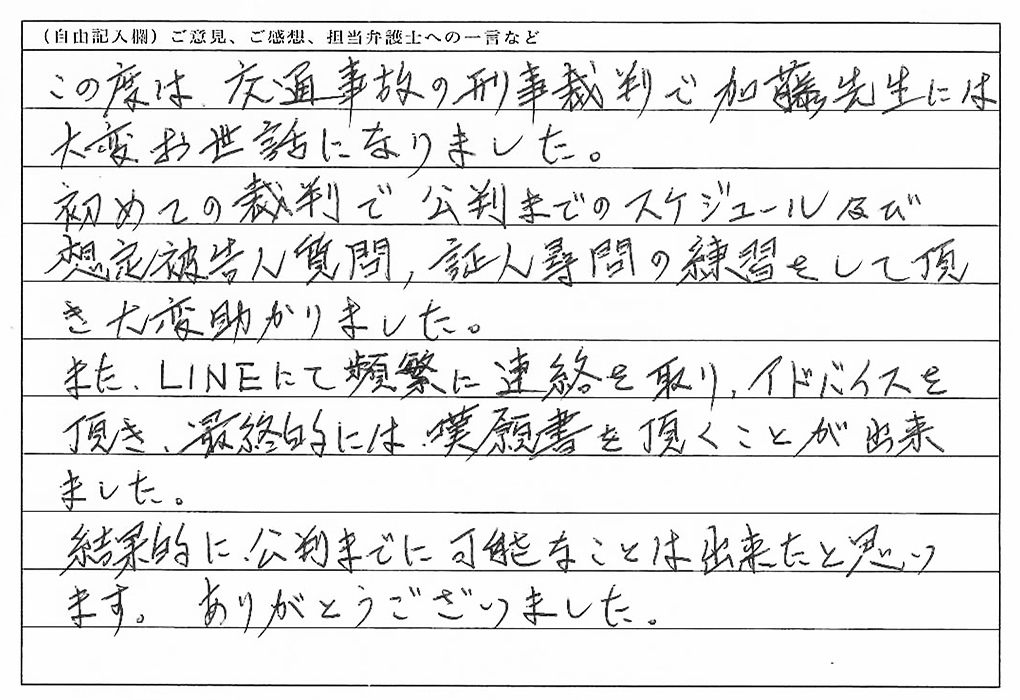 (自由記入欄)ご意見、ご感想、担当弁護士への一言など
この度は、交通事故の刑事裁判で加藤先生には
大変お世話になりました。
初めての裁判で公判までのスケジュール及び
想定被告人質問,証人尋問の練習をして頂
き大変助かりました。
また、LINEにて頻繁に連絡を取り,アドバイスを
頂き、最終的には嘆願書を頂くことが出来
ました。
結果的に、公判までに可能なことは出来たと思い
ます。 ありがとうございました。